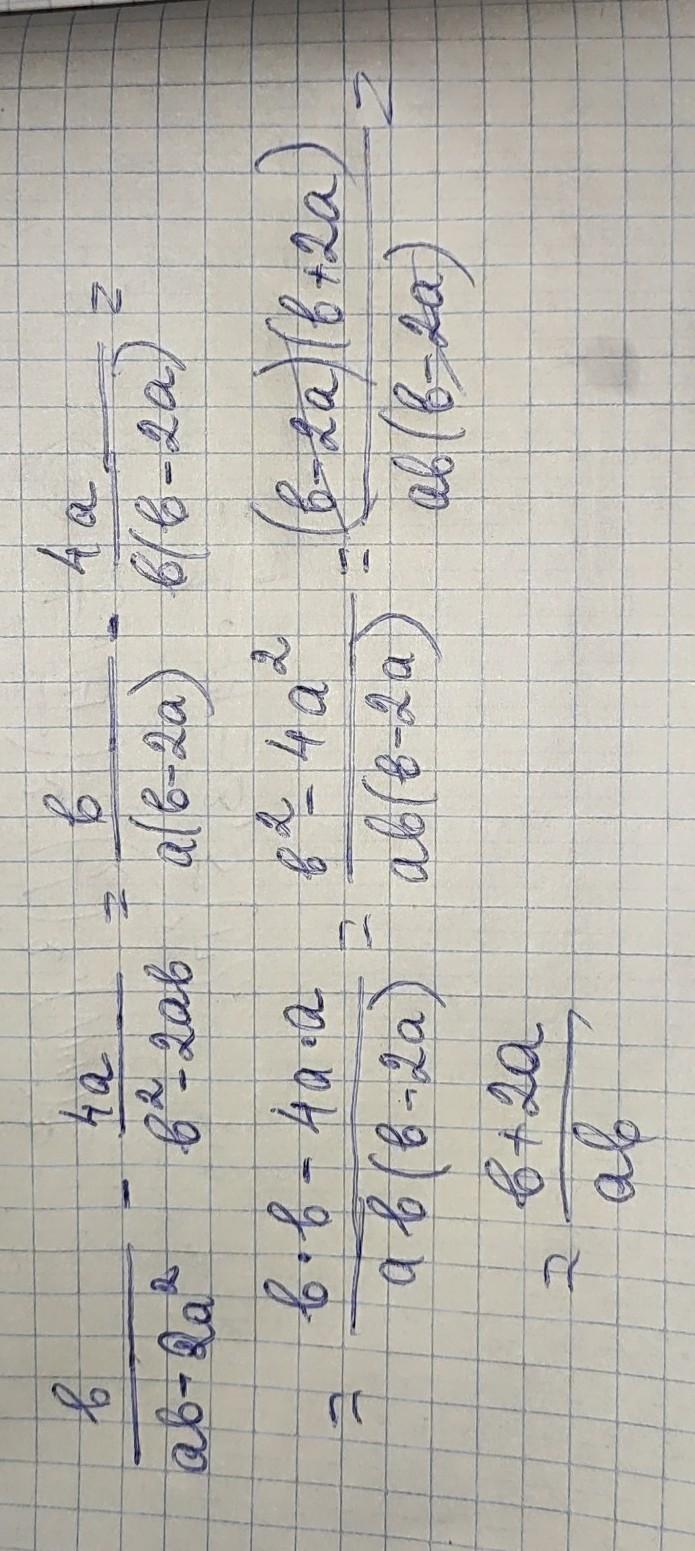 b/(ab-2a²) - 4a/(b²-2ab) = b/(a(b-2a)) - 4a/(b(b-2a)) =
= (b·b-4a·a)/(ab(b-2a)) = (b²-4a²)/(ab(b-2a)) = ((b-2a)(b+2a))/(ab(b-2a)) =
= (b+2a)/(ab)